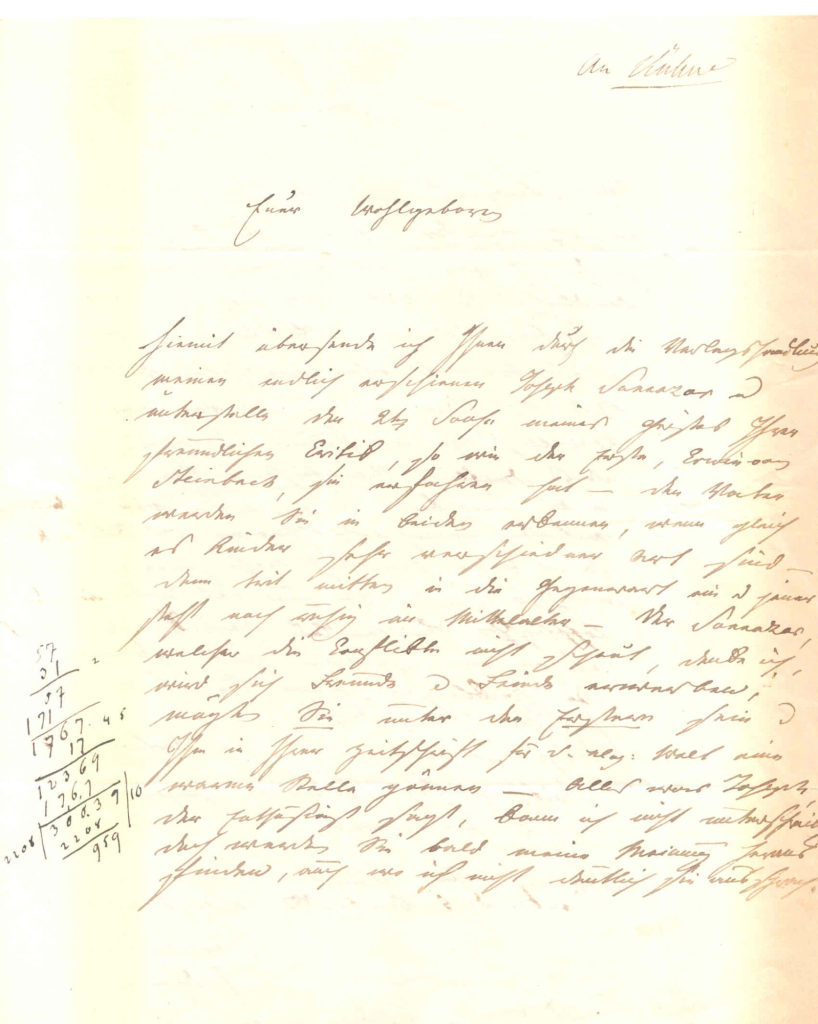 An Kühne
Euer Wohlgeboren
hiemit übersende ich Ihnen durch die Verlagshandlung
meinen endlich erschienen Joseph Sannazar u
unterstelle den 2ten Sohn meines Geistes Ihrer
freundlichen Critik, so wie der erste, Erwin von
Steinbach, sie erfahren hat – den Vater
werden Sie in beiden erkennen, wenn gleich
es Kinder sehr verschiedner Art sind –
denn tritt mitten in die Gegenwart ein u jener
steht noch ruhig im Mittelalter – Der Sannazar,
welcher die nicht scheut, denke ich,
wird sich Freunde u Feinde erwerben,
mögten Sie unter den Erstern sein u
Ihm in Ihrer Zeitschrift für d. eleg: Welt eine
warme Stelle gönnen – Alles was Joseph,
der Enthusiast sagt, kann ich nicht unterschreiben
doch werden Sie bald meine Meinung heraus
finden, auch wo ich nicht deutlich sie aussprach.
57
31
57
171
1767. 45
17
12369
1767
2208 30039 10
2208
959